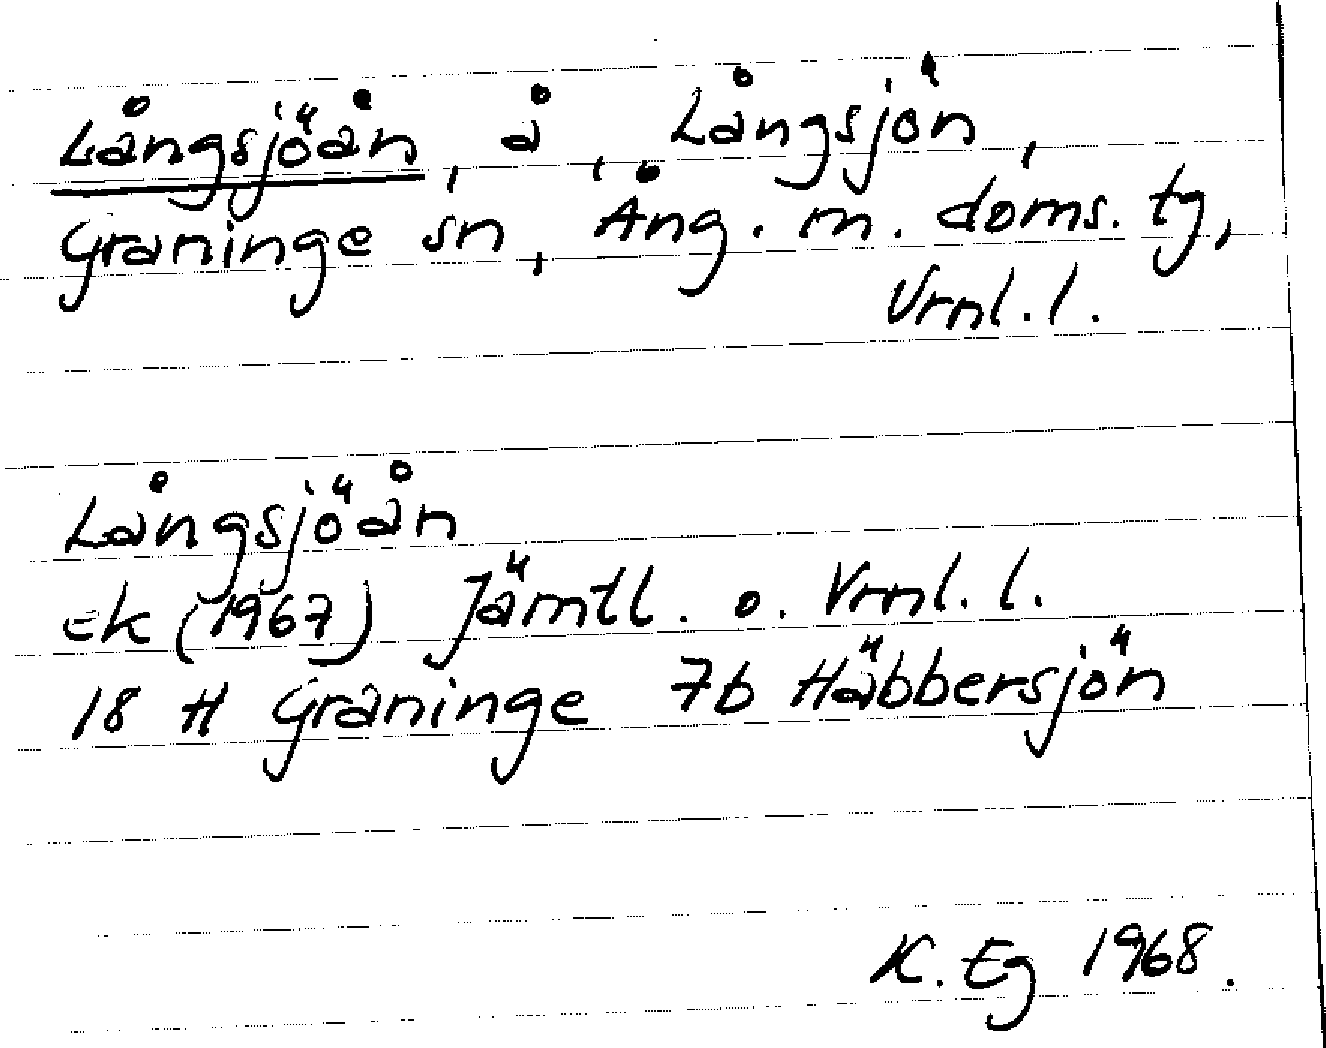 Långsjöån, å, Långsjön,
Graninge sn, Ång. m. doms. tg,
Vrnl. l.
Långsjöån
Ek (1967) Jämtl. o. Vrnl. l.
18 H Graninge 7b Häbbersjön
K. Eg 1968.